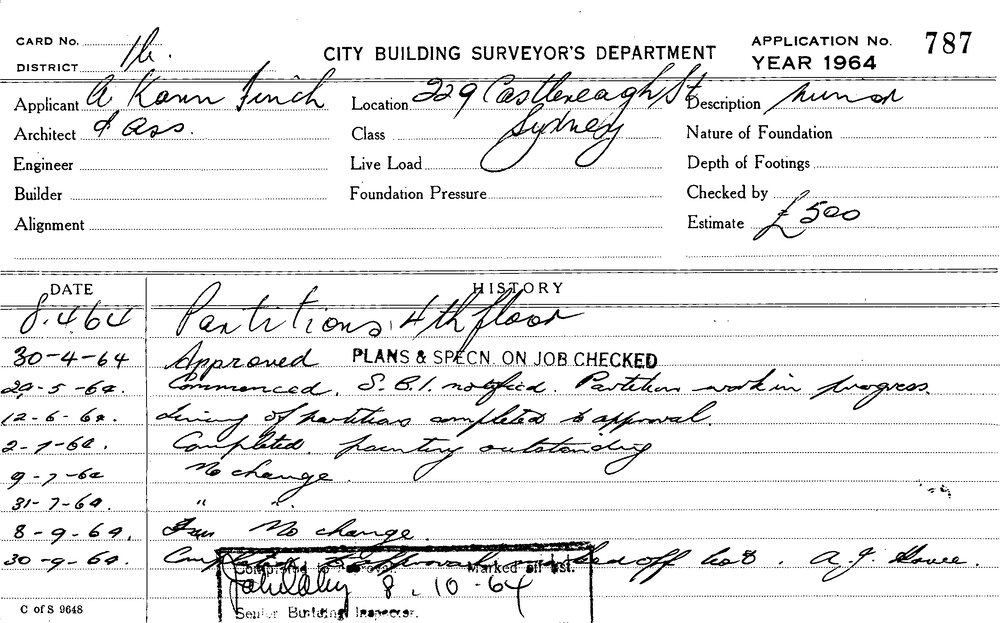 CARD No. 16.
DISTRICT
CITY BUILDING SURVEYOR'S DEPARTMENT
APPLICATION No. 787
YEAR 1964
Applicant A Kann Finch Location 229 Castlereagh St Description minor
Architect & Ass. Class Sydney Nature of Foundation
Engineer Live Load Depth of Footings
Builder Foundation Pressure Checked by
Alignment Estimate £500
DATE HISTORY
8.4.64 Partitions, 4th floor
30-4-64 Approved PLANS & SPECN. ON JOB CHECKED
29-5-64. Commenced. S.B.I. notified. Partition work in progress.
12-6-64. Lining of partitions completed to approval.
2-7-64. Completed. painting outstanding
9-7-64 No change.
31-7-64. " "
8-9-64. No change.
30-9-64. Completed to approval marked off list. A.J.
Completed to approval Marked off list.
8.10-64
Senior Building Inspector.
C of S 9648